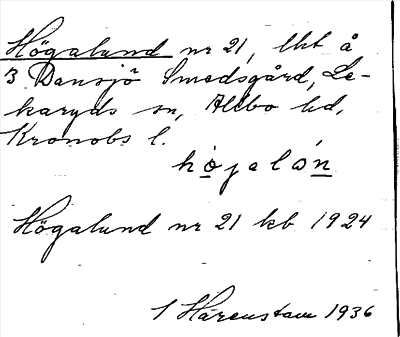 Högalund nr 21, lht å
B Dansjö Smedsgård, Le-
karyds sn, Allbo hd,
Kronobs l.
højalón
Högalund nr 21 kb 1924
I Härenstam 1936